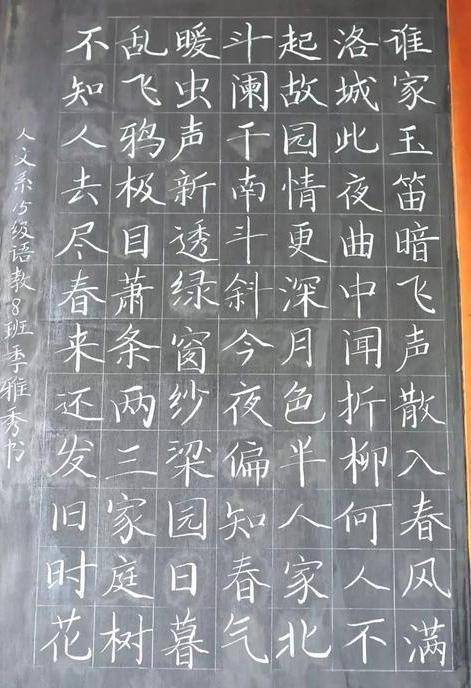 谁家玉笛暗飞声散入春风满
洛城此夜曲中闻折柳何人不
起故园情更深月色半人家北
斗阑干南斗斜今夜偏知春气
暖虫声新透绿窗纱梁园日暮
乱飞鸦极目萧条两三家庭树
不知人去尽春来还发旧时花
人文系15级语教8班季雅秀书